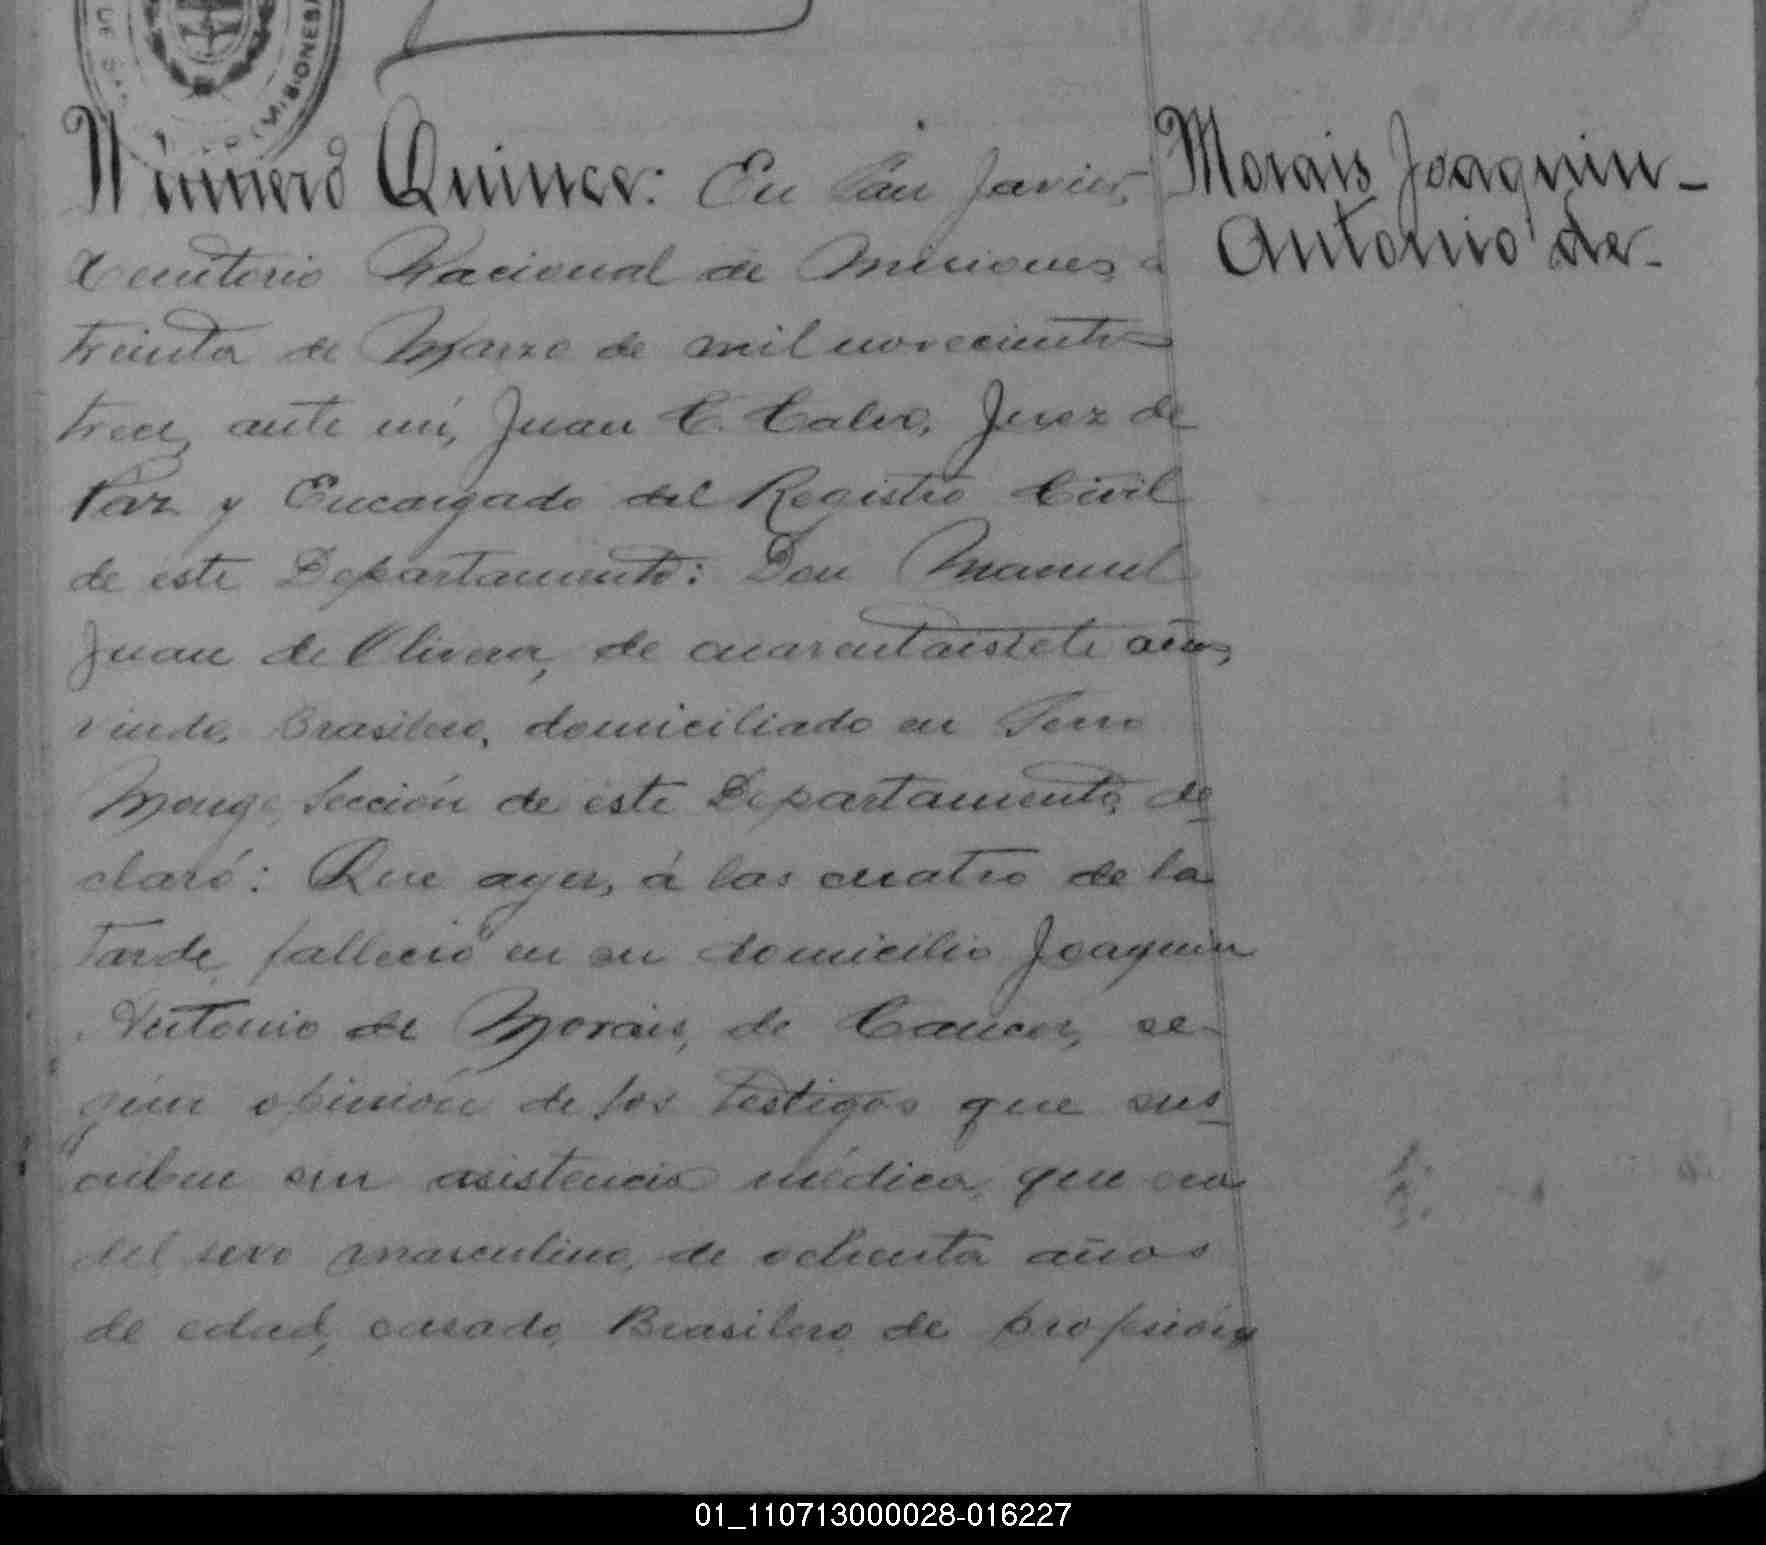 DE SA
(MISIONES)
Número Quince: En San Javier,
Territorio Nacional de Misiones, á
treinta de Marzo de mil novecientos
trece, ante mí, Juan C. Calvo, Juez de
Paz y Encargado del Registro Civil
de este Departamento: Don Manuel
Juan de Olivera, de cuarentaisiete años,
viudo, Brasilero, domiciliado en Serro
Monge, Sección de este Departamento, de
claró: Que ayer, á las cuatro de la
tarde, falleció en su domicilio Joaquin
Antonio de Morais, de Cancer, se-
gún opinión de los testigos que sus
criben sin asistencia médica, que era
del sexo masculino, de ochenta años
de edad, casado, Brasilero, de profesión
Morais Joaquin-
Antonio de-
01_110713000028-016227